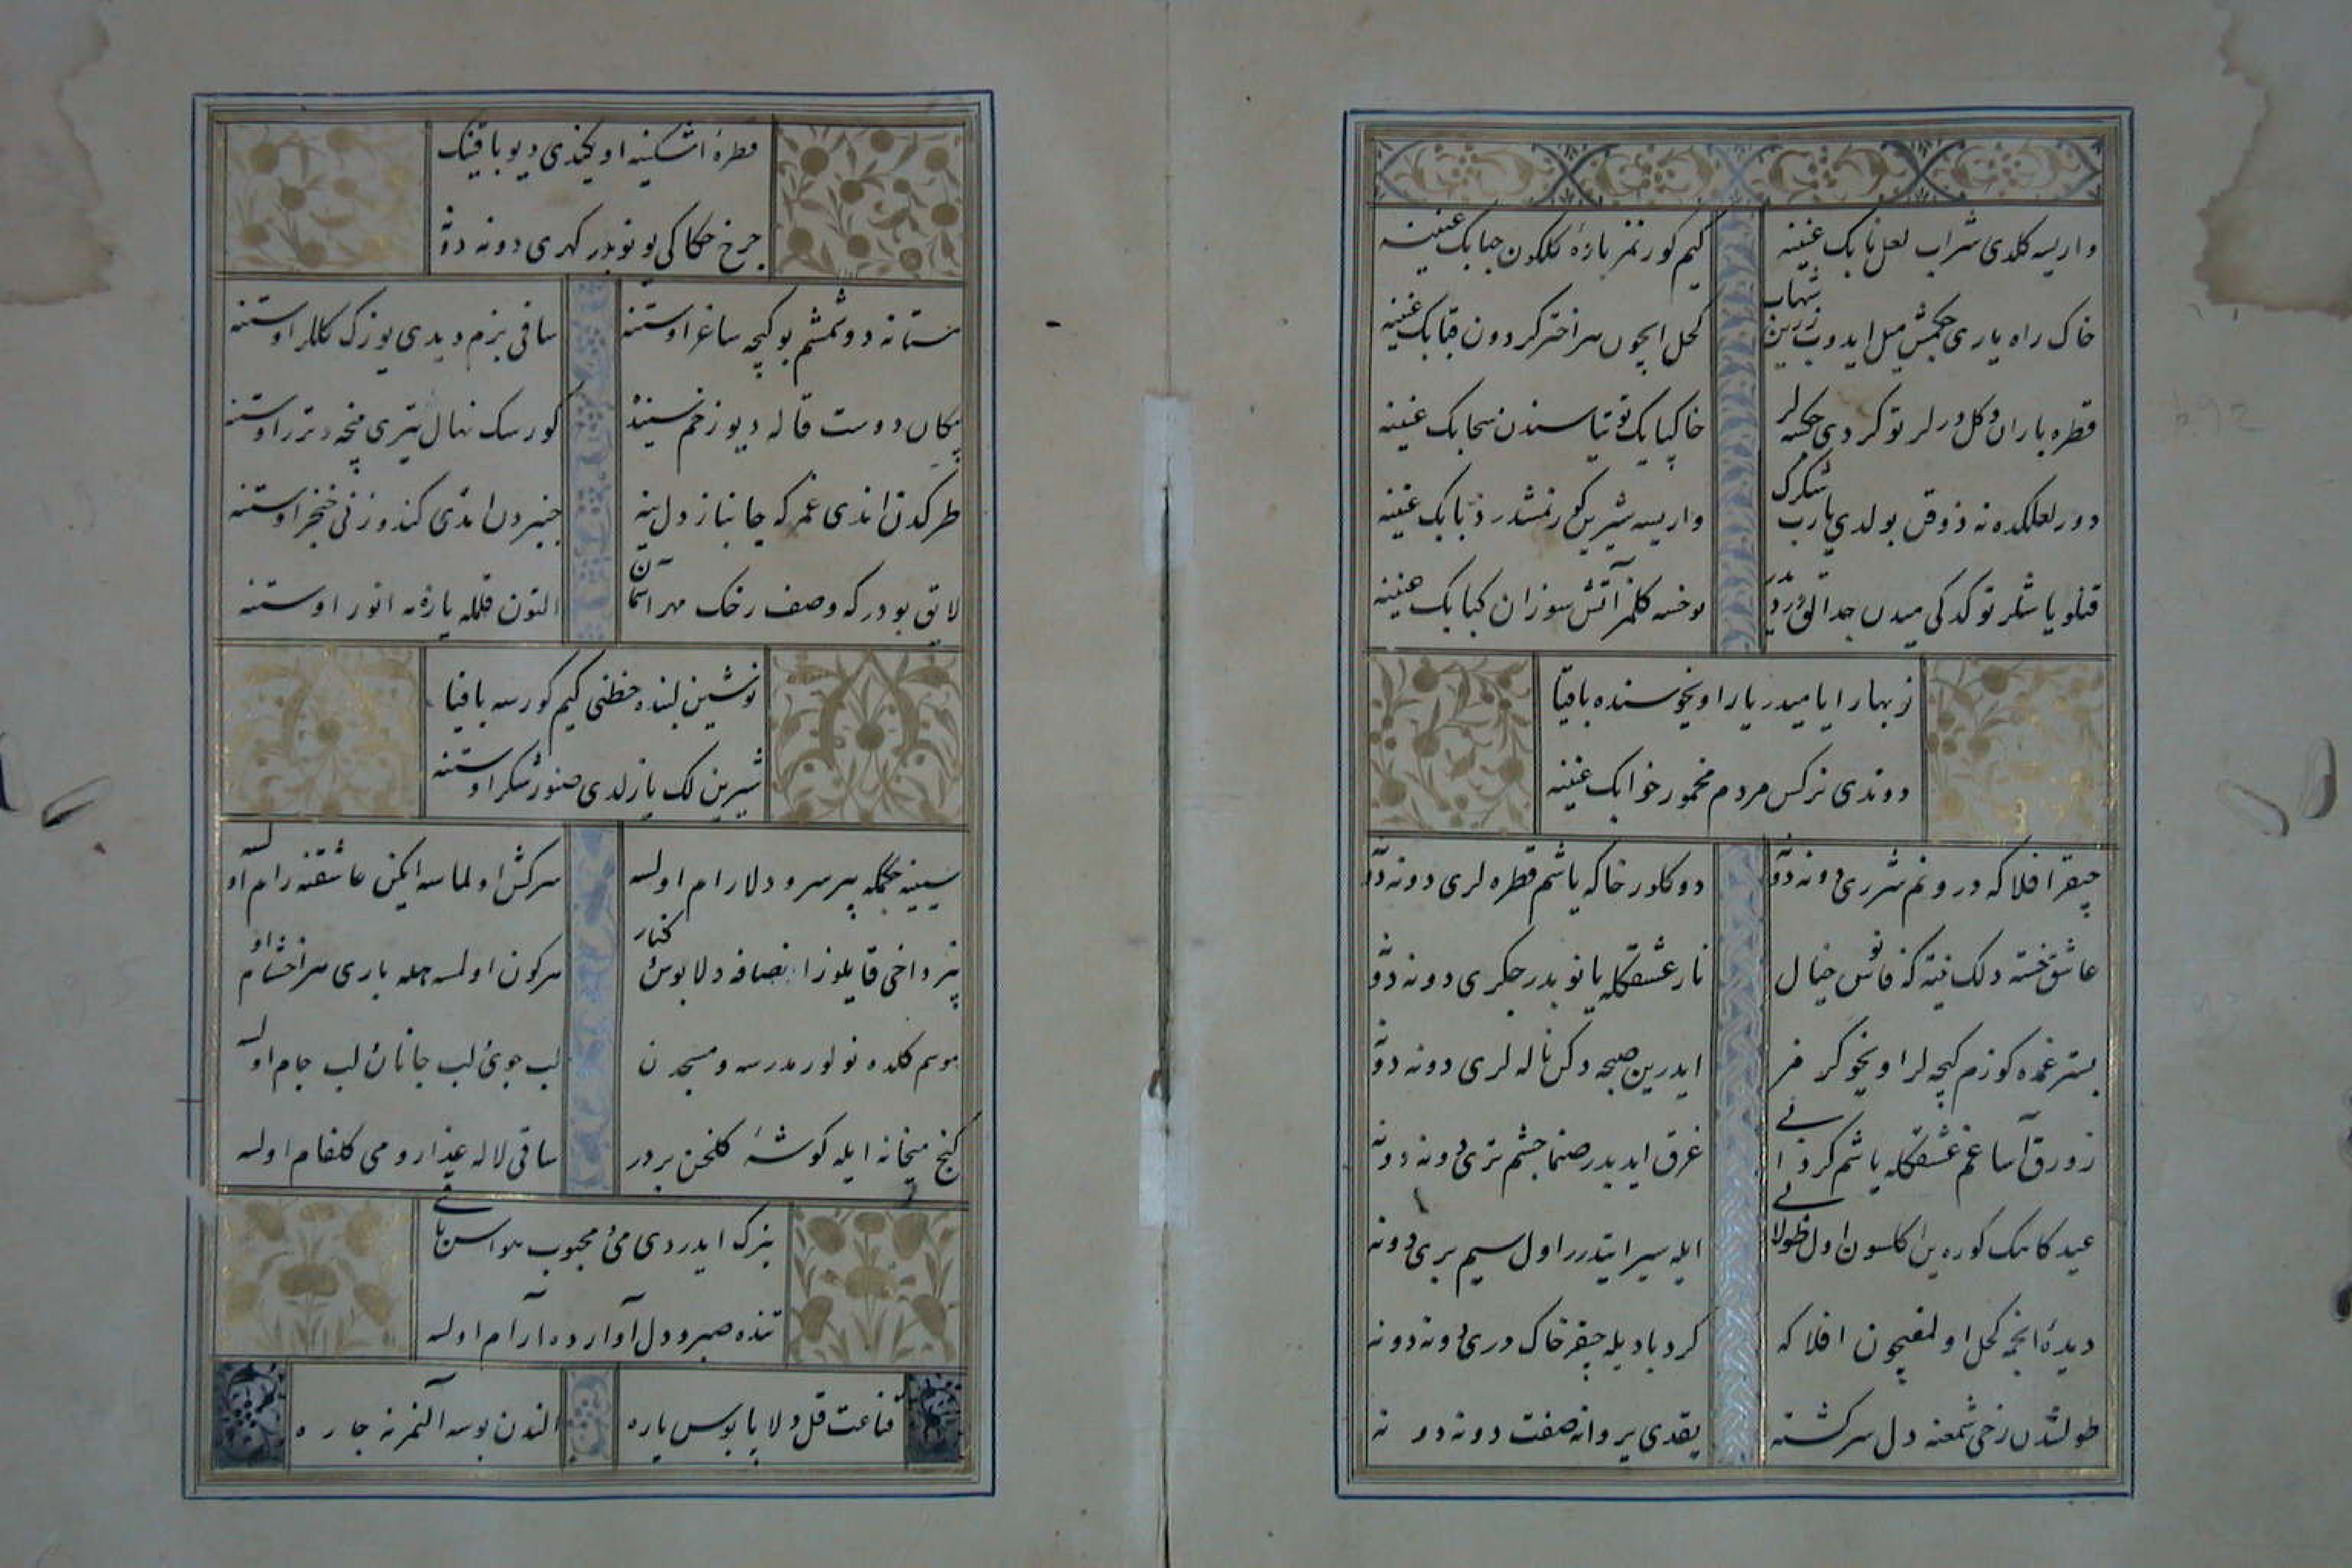 واریسه کلدی شراب لعل نابک عینینه
کیم کورنمز باده کلکون حبابک عینینه
خاک راه یاری چکمش میل ایدوب زرین شهاب
کحل ایچون هر اختر کردون قبابک عینینه
قطره باران دکل درلر توکردی چکسه لر
خاکپایک توتیاسندن سحابک عینینه
دور لعلکده نه ذوق بولدی یارب شکرک
واریسه شیرین کورنمشدر ذبابک عینینه
قنلو یاشلر توکدکی میدن جدالق دردیدر
یوخسه کلمز آتش سوزان کبابک عینینه
نوبهار ایامیدر یار اویخوسنده باقیا
دوندی نرکس مردم مخمور خوابک عینینه
چیقر افلاکه درونم شرری دونه دونه
دوکلور خاکه یاشم قطره لری دونه دونه
عاشق خسته دلک نیته که فانوس خیال
نار عشقکله یانوبدر جکری دونه دونه
بستر غمده کوزم کیجه لر اویخو کرمز
ایدرین صبحه دکن ناله لری دونه دونه
زورق آسا غم عشقکله یاشم کردابی
غرق ایدیدر صنما چشم تری دونه دونه
عید کاهک کوره ین کلسون اول طولابی
ایله سیر ایتدرر اول سیم بری دونه
دیده انجمه کحل اولمغیچون افلاکه
کردباد یله چیقر خاک دری دونه دونه
طولشدن رخی شمعنه دل سرکشته
یقدی پروانه صفت دونه دونه
قطره اشکینه اویکندی دیو باقینک
چرخ حکاکی یونوبدر کهری دونه دونه
مستانه دوشمشم بو کیجه ساغر اوستنه
ساقی بزم دیدی یوزک کللر اوستنه
پیکان دوست قاله دیو زخم سینه ده
کورسک نهال تیری نیجه دتر اوستنه
طرکدن اندی غمزه که جانباز دل ینه
چنبردن اندی کندوزنی خنجر اوستنه
لایق بودر که وصف رخک مهر آسمان
التون قلمله یازه مه انور اوستنه
نوشین لبنده خطنی کیم کورسه باقیا
شیرین لک یازلدی صنور شکر اوستنه
سینیه چکمکه بر سرو دلارام اولسه
سرکش اولماسه ایکن عاشقنه رام اولسه
بزداخی قایلوز انصافه دلا بوس کنار
هرکون اولمسه هله باری هر اخشام اولسه
موسم کلده نولور مدرسه و مسجدن
لب جوی لب جانان لب جام اولسه
کنج میخانه ایله کوشه کلخن بردر
ساقی لاله عذار و می کلفام اولسه
ترک ایدردی می محبوب هواسن باقی
تنده صبر و دل آواره ده آرام اولسه
قناعت قل دلا پابوس یاره
الندن بوسه آلنمز نه چاره